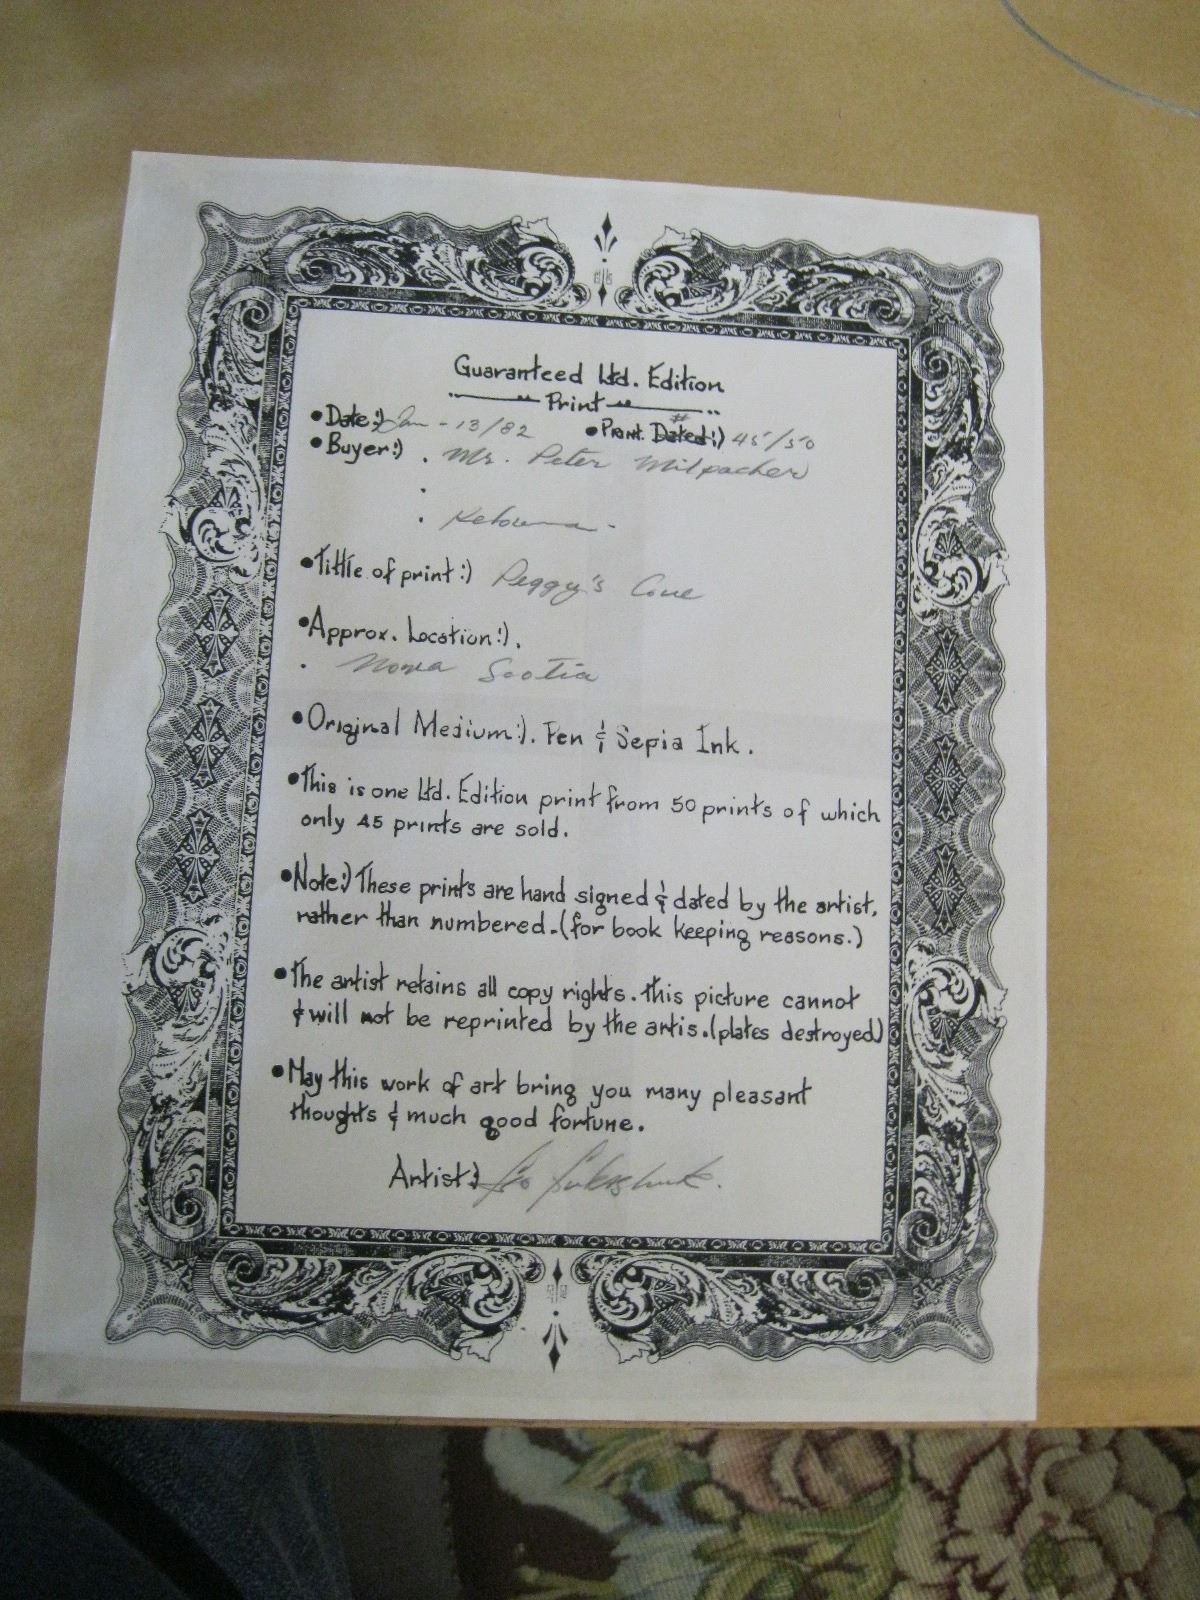 Guaranteed Ltd. Edition
Print
•Date:) Jan - 13/82 •Print # Dated:) 45/50
•Buyer:) . Mr. Peter Milpacher
. Kelowna -
•Tittle of print:) Peggy's Cove
•Approx. Location:).
. Nova Scotia
•Original Medium:). Pen & Sepia Ink.
•This is one Ltd. Edition print from 50 prints of which
only 45 prints are sold.
•Note:) These prints are hand signed & dated by the artist,
rather than numbered.(for book keeping reasons.)
•The artist retains all copy rights. This picture cannot
& will not be reprinted by the artis.(plates destroyed)
•May this work of art bring you many pleasant
thoughts & much good fortune.
Artist:)